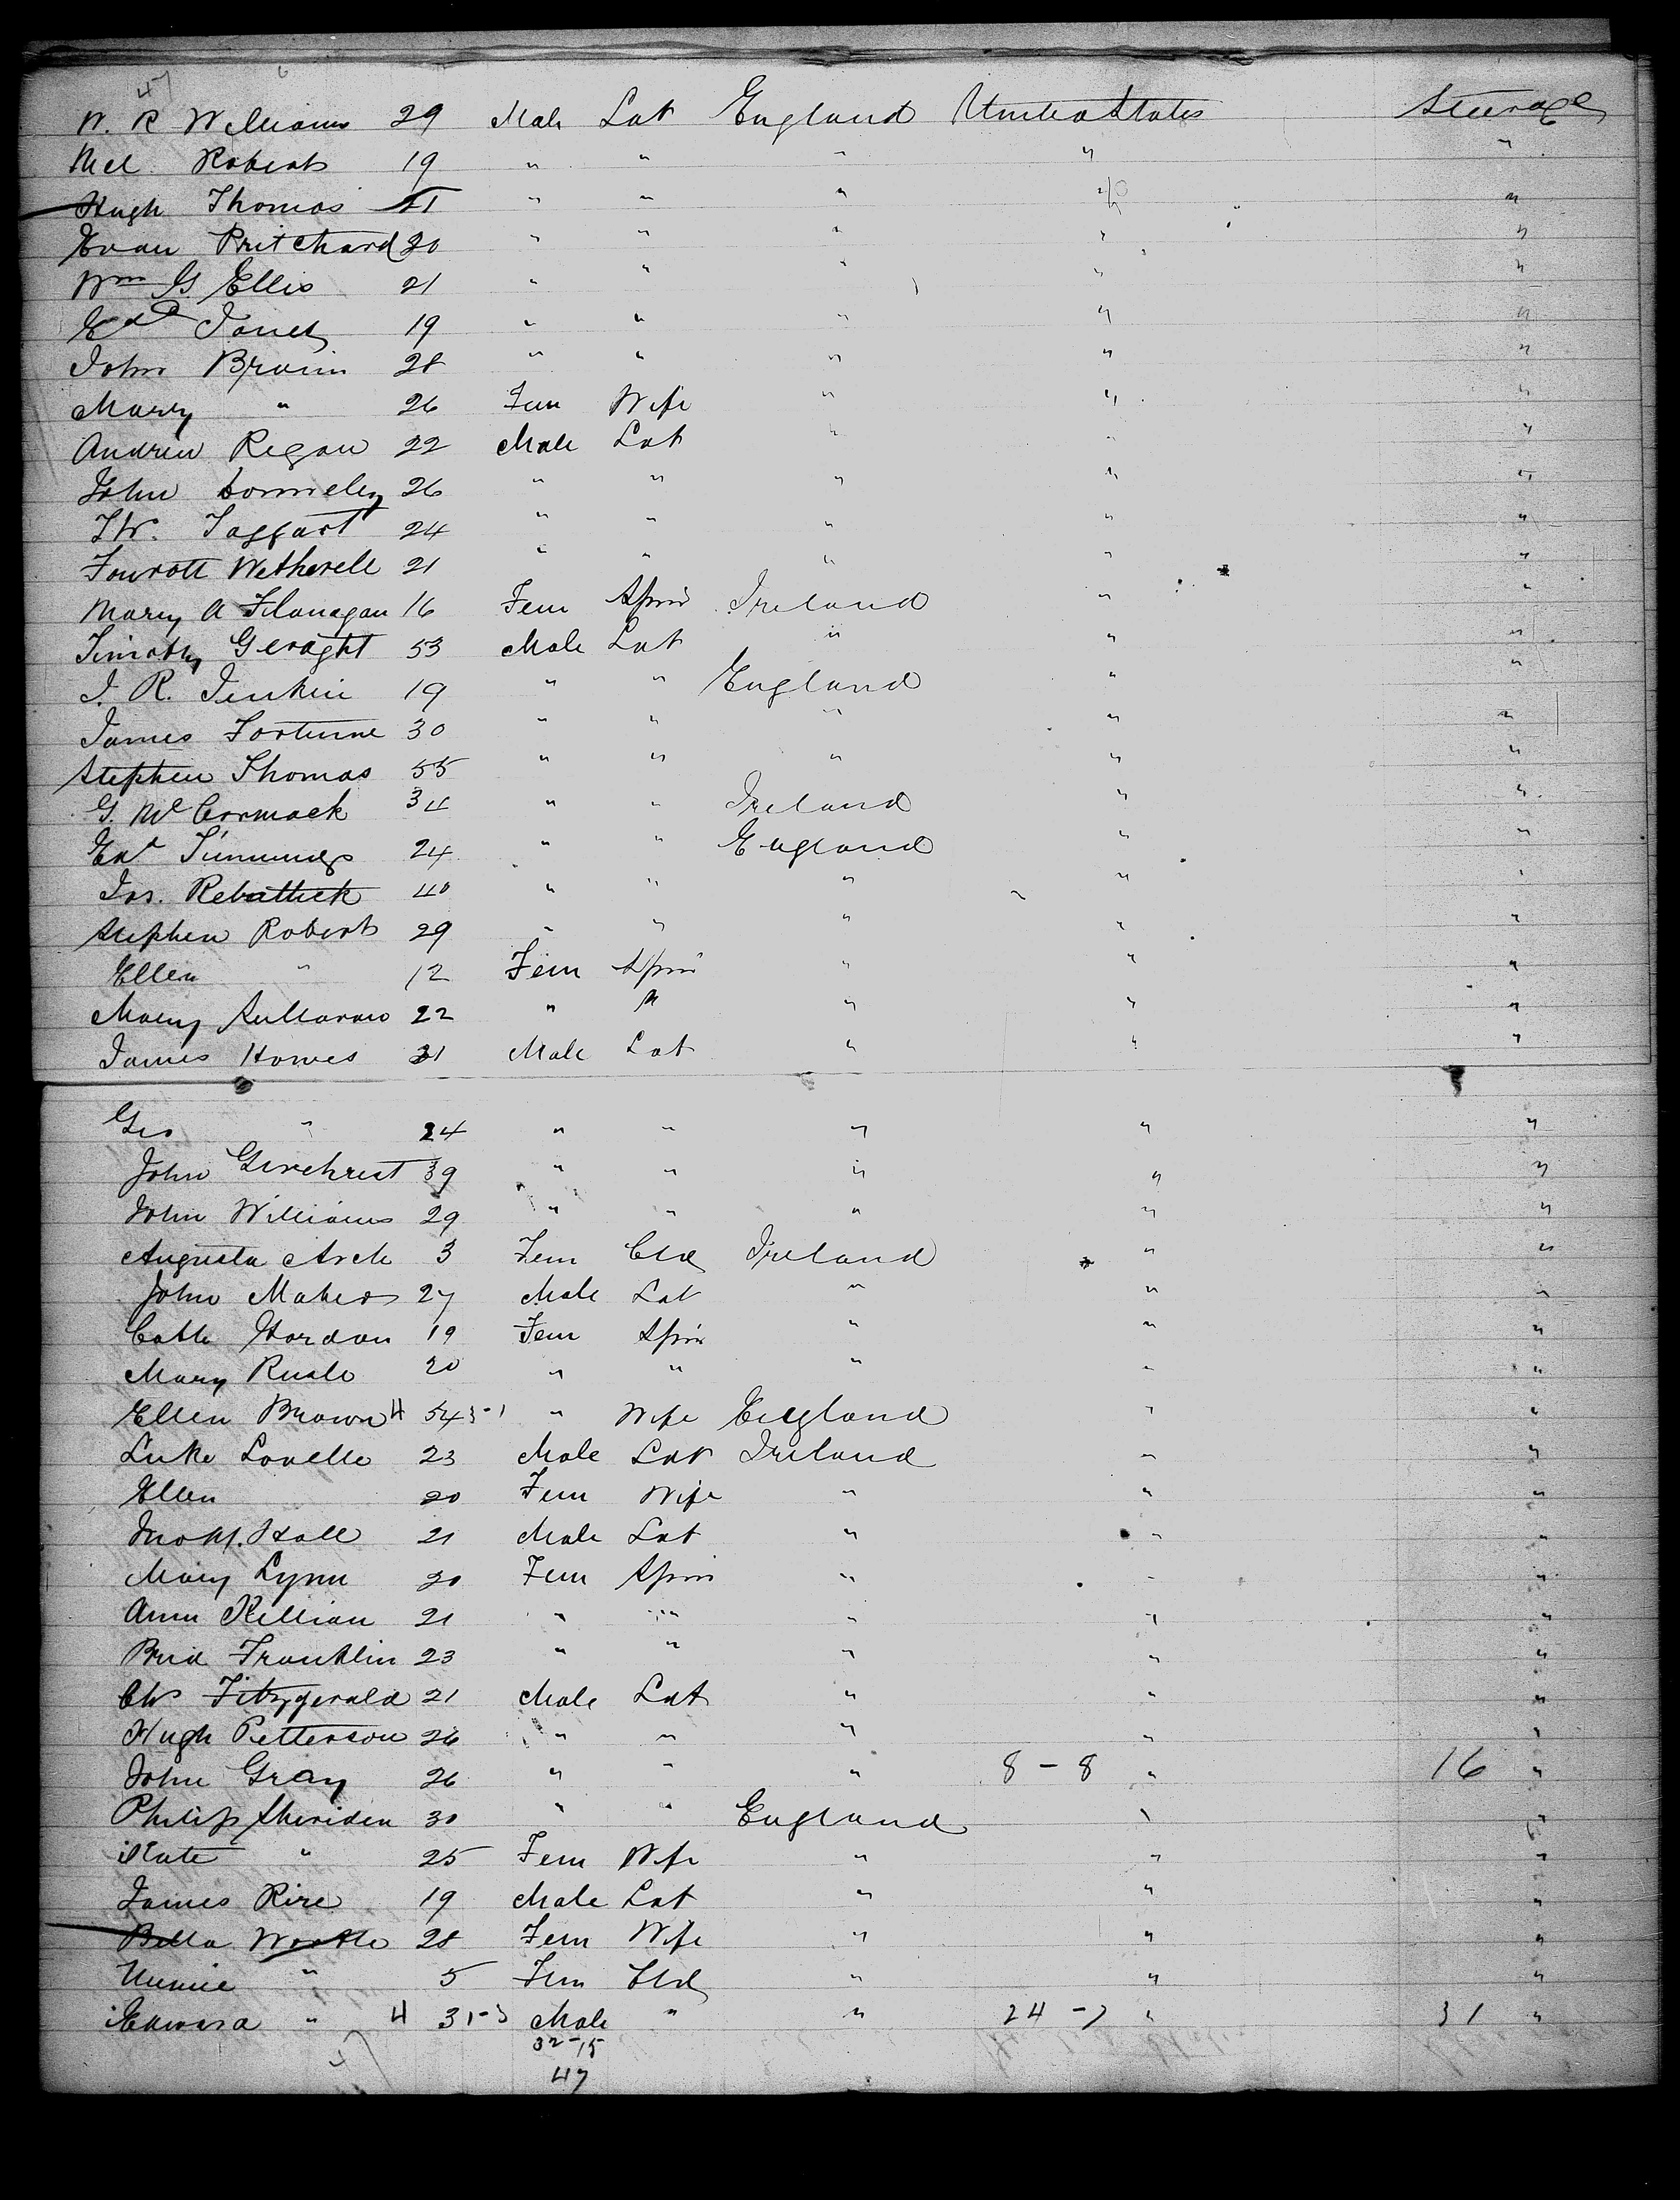 47
W. R Williams 29 Male Lab England United States Steerage
Mcl Roberts 19 " " " " "
Hugh Thomas 21 " " " " "
Evan Pritchard 20 " " " " "
Wm G Ellis 21 " " " "
Edd Jones 19 " " " " "
John Brunin 28 " " " " "
Mary " 26 Fem Wife " " "
Andrew Regan 22 Male Lab " " "
John Donneley 26 " " " " "
T W. Taggart 24 " " " " "
Wetherell 21 " " " " "
Mary A Flanagan 16 Fem Spin Ireland " "
Timothy Geraght 53 Male Lab " " "
J. R. Jenkin 19 " " England " "
James Fortune 30 " " " " "
Stephen Thomas 55 " " " " "
G. McCormack 34 " " Ireland " "
Ed Timmings 24 " " England " "
Jos. Rebattick 40 " " " " "
Stephen Roberts 29 " " " " "
Ellen " 12 Fem Spin " " "
Mary Sullavan 22 " " " " "
James Howes 31 Male Lab " " "
Geo " 24 " " " " "
John Girchrest 39 " " " " "
John Williams 29 " " " " "
Augusta Arch 3 Fem Cld Ireland " "
John Maher 27 Male Lab " " "
Cath Hordan 19 Fem Spin " " "
Mary Ruale 20 " " " " "
Ellen Brown 4 54 3-1 " Wife England " "
Luke Lavelle 23 Male Lab Ireland " "
Ellen 20 Fem Wife " " "
Jno M. Hall 21 Male Lab " " "
Mary Lynn 20 Fem Spin " " "
Ann Killian 21 " " " " "
Brid Franklin 23 " " " " "
Ch Fitzygerald 21 Male Lab " " "
Hugh Petterson 26 " " " " "
John Gray 26 " " " 8 - 8 " 16 "
Philip Sheriden 30 " " England " "
Kate " 25 Fem Wife " " "
James Rire 19 Male Lab " " "
Bella 28 Fem Wife " " "
" 5 Fem Cld " " "
Edward " 4 31-3 Male " " 24 - 7 " 31 "
32-15
47